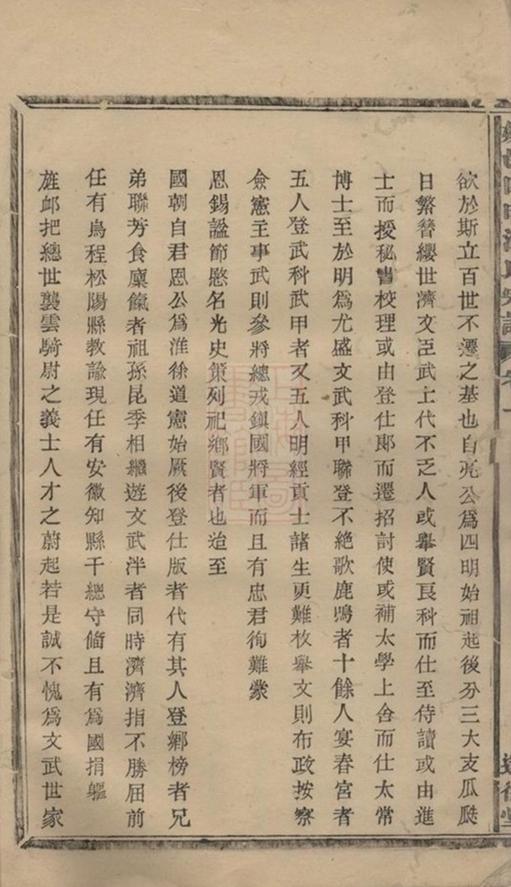 欲於斯立百世不遷之基也自亮公爲四明始祖起後分三大支瓜瓞
日繁簪纓世濟文臣武士代不乏人或舉賢良科而仕至侍讀或由進
士而授秘書校理或由登仕郞而遷招討使或補太學上舍而仕太常
博士至於明爲尤盛文武科甲聯登不絕歌鹿鳴者十餘人宴春宮者
五人登武科武甲者又五人明經貢士諸生更難枚舉文則布政按察
僉憲主事武則參將總戎鎭國將軍而且有忠君徇難蒙
恩錫謚節愍名光史策列祀鄉賢者也迨至
國朝自君恩公爲淮徐道憲始厥後登仕版者代有其人登鄉榜者兄
弟聯芳食廩餼者祖孫昆季相繼遊文武泮者同時濟濟指不勝屈前
任有烏程松陽縣教諭現任有安徽知縣千總守備且有爲國捐軀
旌卹把總世襲雲騎尉之義士人才之蔚起若是誠不愧爲文武世家